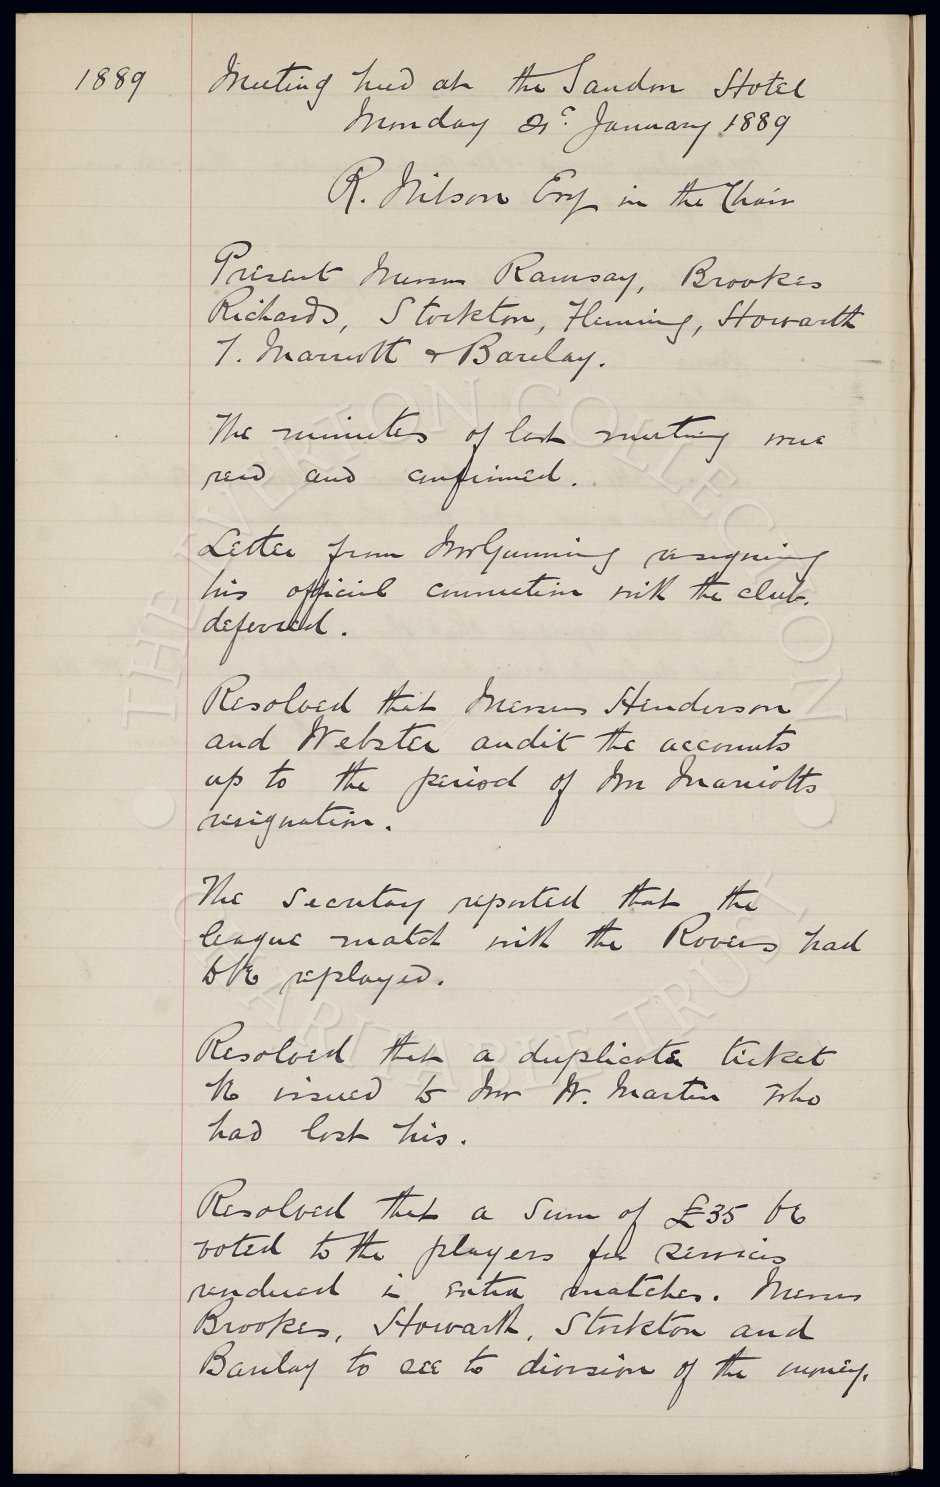 1889
Meeting held at the Sandon Hotel
Monday 21st January 1889
R. Wilson Esq in the Chair
Present Messrs Ramsay, Brookes
Richards, Stockton, Fleming, Howarth
T. Marriott & Barclay.
The minutes of last meeting were
read and confirmed.
Letter from Mr Gunning resigning
his official connection with the club.
deferred.
Resolved that Messrs Henderson
and Webster audit the accounts
up to the period of Mr Marriotts
resignation.
The Secretary reported that the
league match with the Rovers had
to be replayed.
Resolved that a duplicate ticket
be issued to Mr W. Martin who
had lost his.
Resolved that a sum of £35 be
voted to the players for services
rendered in extra matches. Messrs
Brookes, Howarth, Stockton and
Barclay to see to division of the money.
THE EVERTON COLLECTION
CHARITABLE TRUST